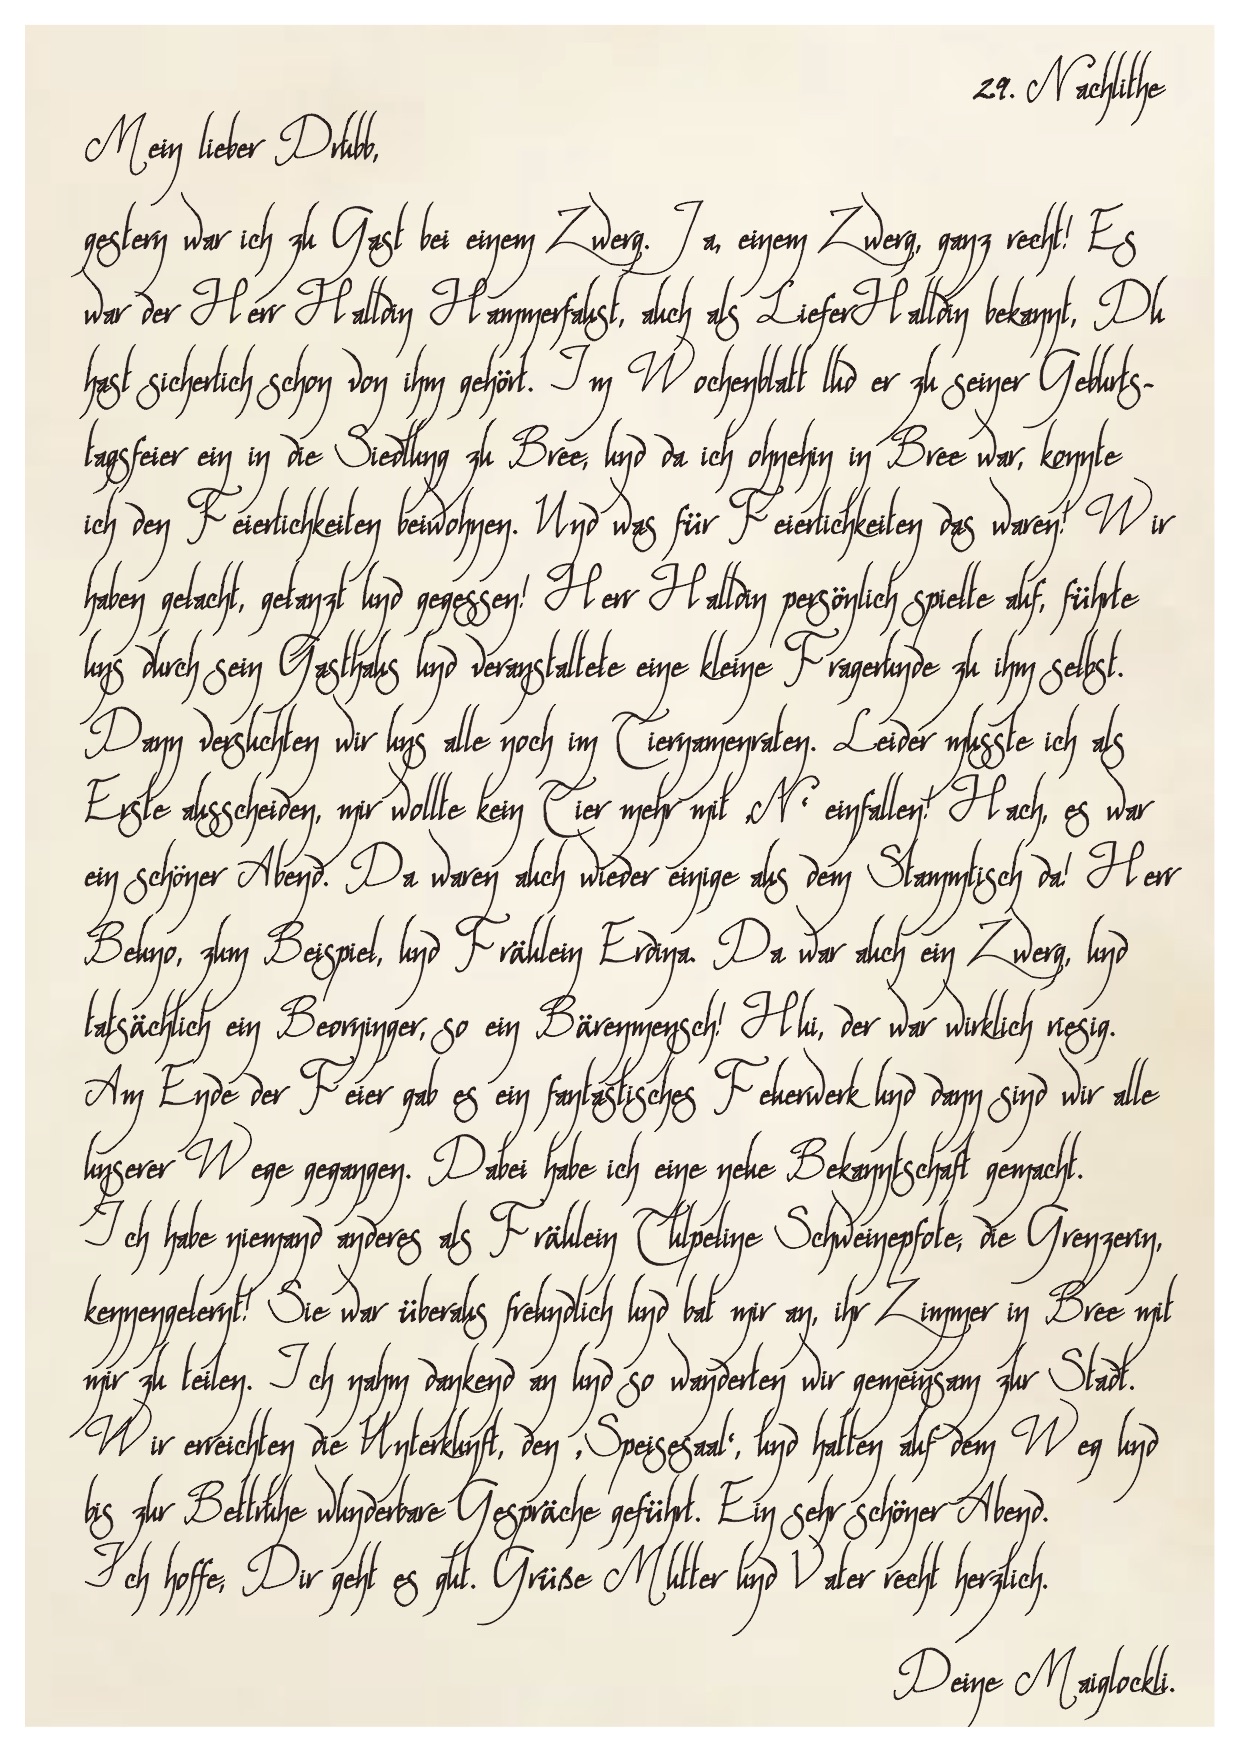 29. Nachlithe
Mein lieber Drubb,
gestern war ich zu Gast bei einem Zwerg. Ja, einem Zwerg, ganz recht! Es
war der Herr Halldin Hammerfaust, auch als LieferHalldin bekannt, Du
hast sicherlich schon von ihm gehört. Im Wochenblatt lud er zu seiner Geburts-
tagsfeier ein in die Siedlung zu Bree, und da ich ohnehin in Bree war, konnte
ich den Feierlichkeiten beiwohnen. Und was für Feierlichkeiten das waren! Wir
haben gelacht, getanzt und gegessen! Herr Halldin persönlich spielte auf, führte
uns durch sein Gasthaus und veranstaltete eine kleine Fragerunde zu ihm selbst.
Dann versuchten wir uns alle noch im Tiernamenraten. Leider musste ich als
Erste ausscheiden, mir wollte kein Tier mehr mit ‚N‘ einfallen! Hach, es war
ein schöner Abend. Da waren auch wieder einige aus dem Stammtisch da! Herr
Beuno, zum Beispiel, und Fräulein Erdina. Da war auch ein Zwerg, und
tatsächlich ein Beorninger, so ein Bärenmensch! Hui, der war wirklich riesig.
Am Ende der Feier gab es ein fantastisches Feuerwerk und dann sind wir alle
unserer Wege gegangen. Dabei habe ich eine neue Bekanntschaft gemacht.
Ich habe niemand anderes als Fräulein Tulpeline Schweinepfote, die Grenzerin,
kennengelernt! Sie war überaus freundlich und bat mir an, ihr Zimmer in Bree mit
mir zu teilen. Ich nahm dankend an und so wanderten wir gemeinsam zur Stadt.
Wir erreichten die Unterkunft, den ‚Speisesaal‘, und hatten auf dem Weg und
bis zur Bettruhe wunderbare Gespräche geführt. Ein sehr schöner Abend.
Ich hoffe, Dir geht es gut. Grüße Mutter und Vater recht herzlich.
Deine Maiglockli.